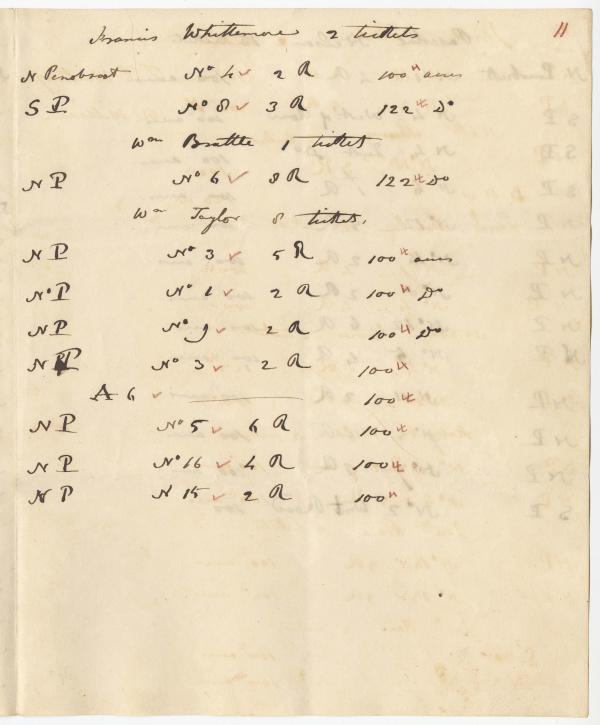 Francis Whittemore 2 tickets 11
N Penobscot No 4 ✓ 2 R 100 acres
S P No 8 ✓ 3 R 122 Do
Wm Brattle 1 ticket
N P No 6 ✓ 8 R 122 Do
Wm Taylor 8 tickets,
N P No 3 ✓ 5 R 100 acres
No P No 1 ✓ 2 R 100 Do
N P No 9 ✓ 2 R 100 Do
N P No 3 ✓ 2 R 100
A 6 ✓ 100
N P No 5 ✓ 6 R 100
N P No 16 ✓ 4 R 100
N P N 15 ✓ 2 R 100